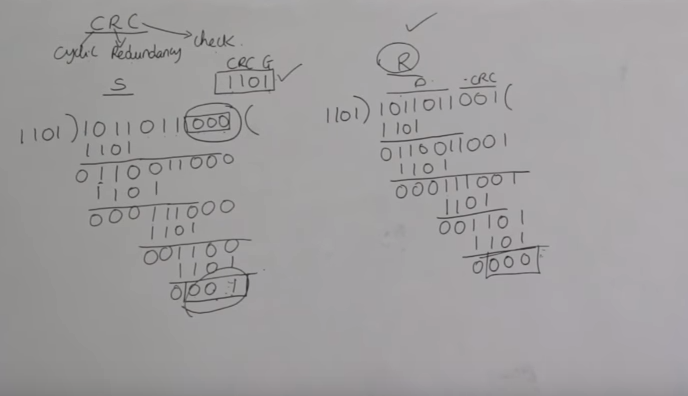 CRC
Cyclic Redundancy check
S
CRC G
1101
1101)1011011000(
1101
0110011000
1101
000111000
1101
001100
1101
0001
R
D CRC
1101)1011011001(
1101
0110011001
1101
000111001
1101
001101
1101
0000